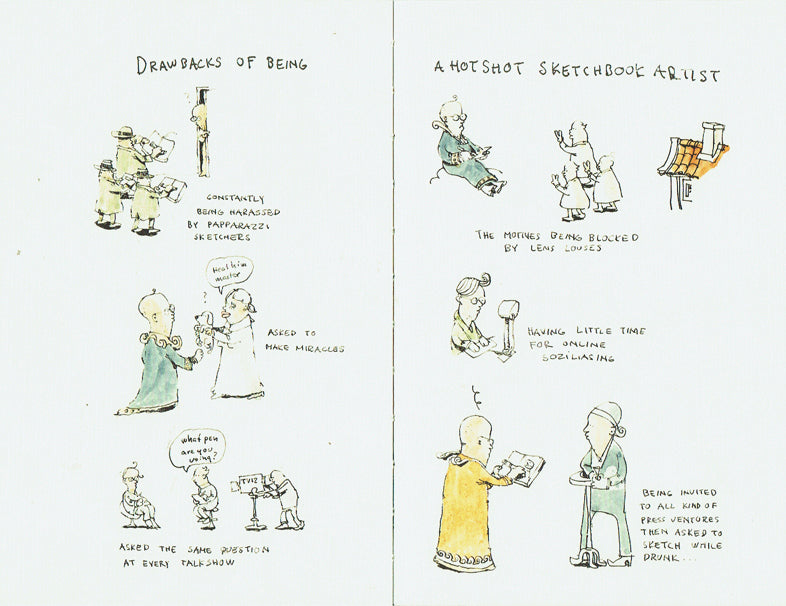 DRAWBACKS OF BEING
A HOTSHOT SKETCHBOOK ARTIST
CONSTANTLY
BEING HARASSED
BY PAPPARAZZI
SKETCHERS
Heal him
master
?
ASKED TO
MAKE MIRACLES
what pen
are you
using?
TV12
ASKED THE SAME QUESTION
AT EVERY TALKSHOW
THE MOTIVES BEING BLOCKED
BY LENS LOUSES
HAVING LITTLE TIME
FOR ONLINE
SOZILIASING
BEING INVITED
TO ALL KIND OF
PRESS VENTURES
THEN ASKED TO
SKETCH WHILE
DRUNK...